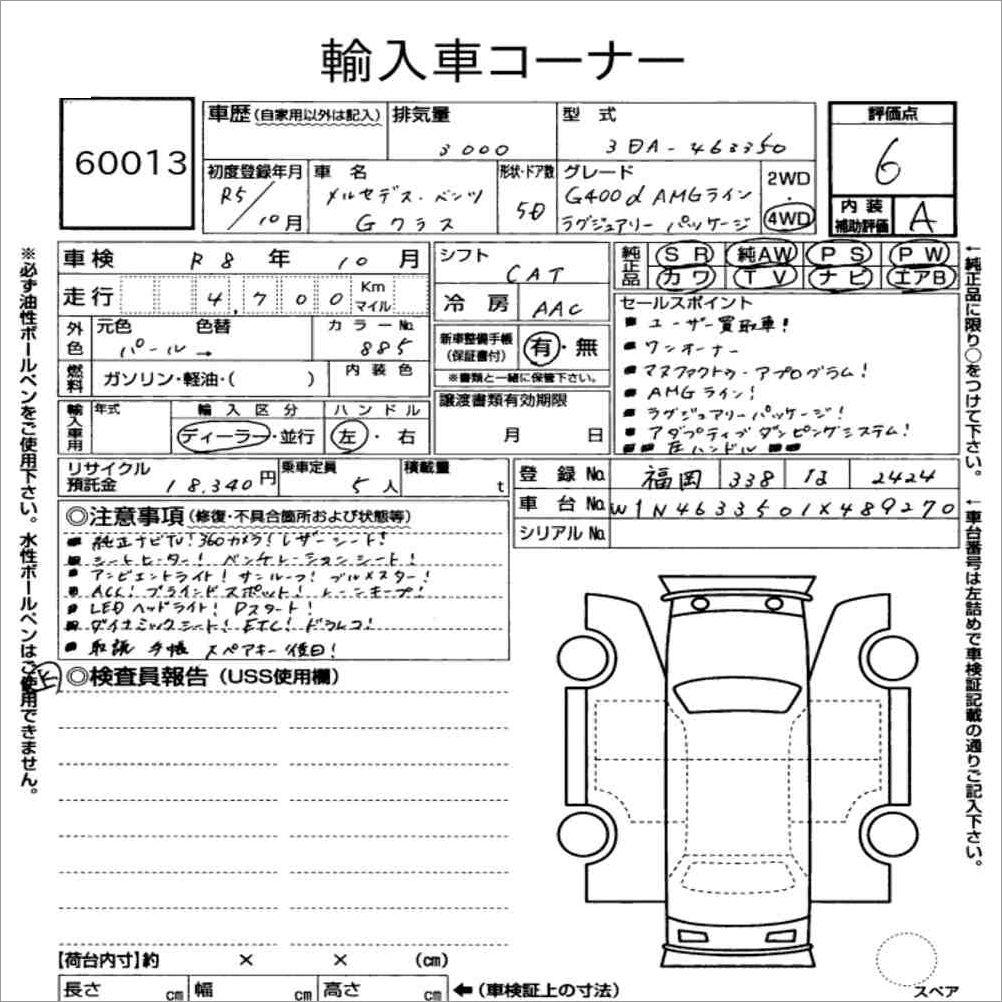 輸入車コーナー
60013
車歴 (自家用以外は記入)
排気量
3000
型式
3DA-463350
評価点
6
内装
補助評価
A
初度登録年月
R5/10月
車名
メルセデス・ベンツ
Gクラス
形状・ドア数
5D
グレード
G400d AMGライン
ラグジュアリー パッケージ
2WD
4WD
車検 R8年 10月
走行 4,700 Km
マイル
シフト
CAT
冷房
AAC
純正品
SR 純AW PS PW
カワ TV ナビ エアB
外色
元色 色替
パール →
カラーNo.
885
燃料
ガソリン・軽油・( )
内装色
新車整備手帳
(保証書付)
有・無
※書類と一緒に保管下さい。
譲渡書類有効期限
月 日
セールスポイント
■ ユーザー買取車!
■ ワンオーナー
■ マヌファクトゥーアプログラム!
■ AMGライン!
■ ラグジュアリーパッケージ!
■ アダプティブダンピングシステム!
■■ 左ハンドル ■■
輸入車用
年式
輸入区分
ディーラー・並行
ハンドル
左・右
リサイクル
預託金
18,340円
乗車定員
5人
積載量
t
登録No. 福岡 338 は 2424
車台No. W1N4633501X489270
シリアルNo.
◎注意事項 (修復・不具合箇所および状態等)
■ 純正ナビTV! 360カメラ! レザーシート!
■ シートヒーター! ベンチレーションシート!
■ アンビエントライト! サンルーフ! ブルメスター!
■ ACC! ブラインドスポット! レーンキープ!
■ LEDヘッドライト! Pスタート!
■ ダイナミックシート! ETC! ドラレコ!
■ 取説 手帳 スペアキー後日!
◎検査員報告 (USS使用欄)
【荷台内寸】約 × × (cm)
長さ cm 幅 cm 高さ cm ←(車検証上の寸法)
スペア
※必ず油性ボールペンをご使用下さい。水性ボールペンはご使用できません。
←純正品に限り○をつけて下さい。
←車台番号は左詰めで車検証記載の通りご記入下さい。